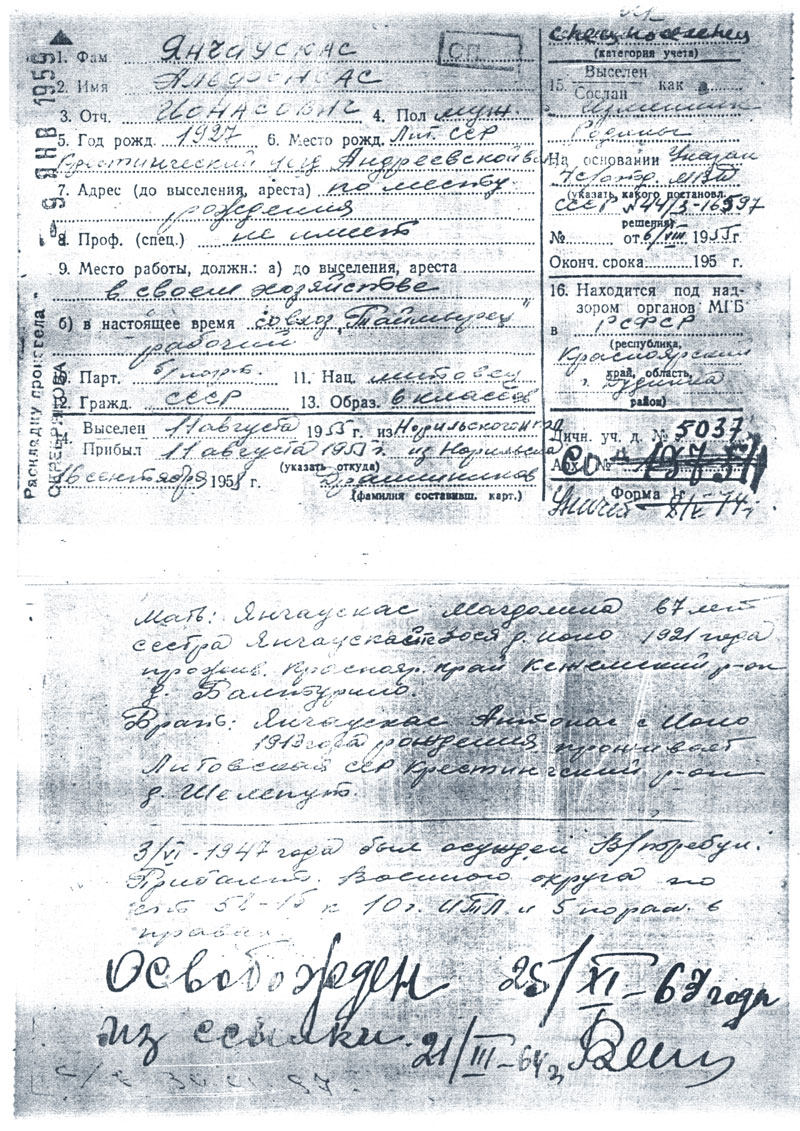 9 ЯНВ 1959
СП.
спецпоселенец
(категория учета)
1. Фам Янчаускас
2. Имя Альфонсас
3. Отч. Ионасович 4. Пол муж
5. Год рожд. 1927 6. Место рожд. Лит. ССР
Кретингический уезд Андреевской вол
7. Адрес (до выселения, ареста) по месту
рождения
8. Проф. (спец.) не имеет
9. Место работы, должн.: а) до выселения, ареста
в своем хозяйстве
б) в настоящее время совхоз „Таймырец"
рабочий
10. Парт. б/парт. 11. Нац. литовец
12. Гражд. СССР 13. Образ. 6 классов
14. Выселен 11 августа 1955 г. из Норильского
Прибыл 11 августа 1955 г. из Норильска
(указать откуда)
16 сентября 1955 г.
(фамилия составивш. карт.)
15. Выселен
Сослан как
изменник
Родины
На основании Указан
МВД
(указать какого постановл.
СССР № 44/3-16597
решения)
№ от 6/VIII 1955 г.
Оконч. срока 195 г.
16. Находится под над-
зором органов МГБ
в РСФСР
(республика,
Красноярский
край, область,
г. Дудинка
район)
Личн. уч. д. № 5037
Арх. №
Форма 1
Раскладку произвела
Мать: Янчаускас Магдолина 67 лет
сестра Янчаускас д. Ионо 1921 года
прожив. Краснояр. край Кежемский р-он
д. Балтурино.
Брат: Янчаускас Антонас с Ионо
1913 года рождения проживает
Литовской ССР Кретингский р-он
д.
3/VI-1947 года был осужден В/трибун.
Прибалт. Военного округа по
ст 58- к 10 г. ИТЛ и 5 пораж. в
правах
Освобожден 25/XI-63 года
из ссылки. 21/III-64г.